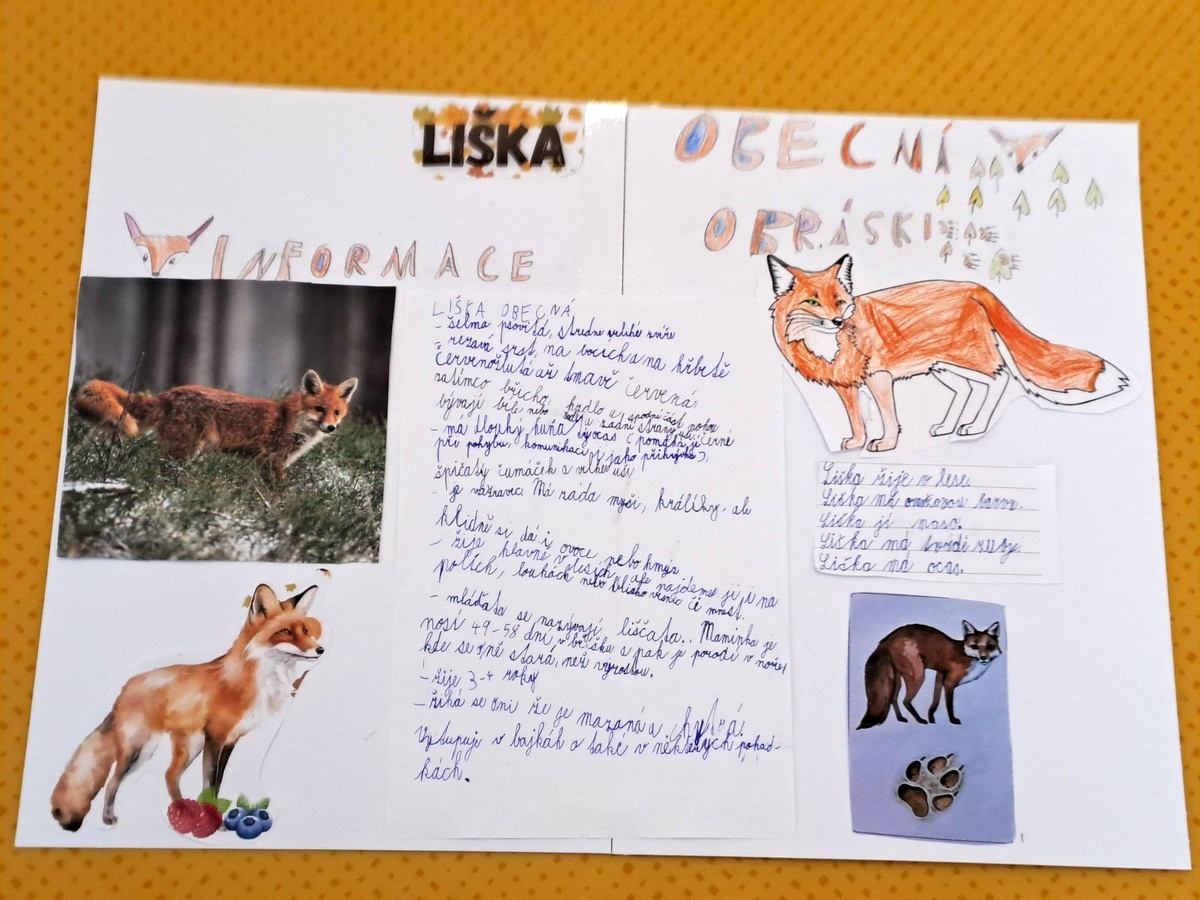 LIŠKA
OBECNÁ
INFORMACE
LIŠKA OBECNÁ
- šelma psovitá, středně veliké zvíře
- rezavá srst, na bocích a na hřbetě
červenožlutá až tmavě červená,
zatímco břicho, hrdlo a spodní část
bývají bílé nebo zadní strany uší černé
- má dlouhý huňatý ocas (pomáhá jí
při pohybu, komunikaci, jako přikrývka),
špičatý čumáček a velké uši
- je všežravec. Má ráda myši, králíky, ale
klidně si dá i ovoce nebo hmyz
- žije hlavně v lesích, ale najdeme ji i na
polích, loukách nebo blízko vesnic či měst.
- mláďata se nazývají liščata.. Maminka je
nosí 49-58 dní v bříšku a pak je porodí v noře,
kde se o ně stará, než vyrostou.
- žije 3-4 roky
- říká se o ní že je mazaná a chytrá.
Vystupuje v bajkách a také v některých pohád-
kách.
OBRÁSKI
Liška žije v lese.
Liška má oranžovou barvu.
Liška jí maso.
Liška má tvrdé zuby.
Liška má ocas.